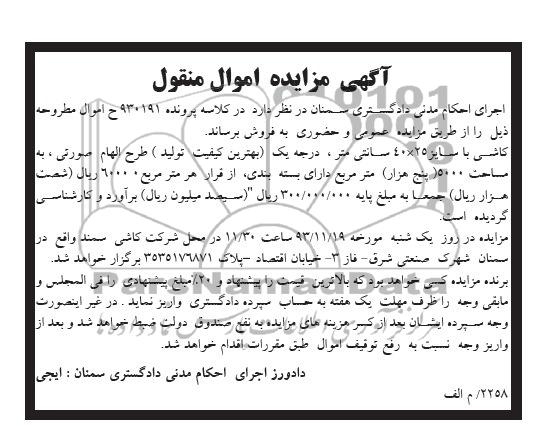 آگهی مزایده اموال منقول
اجرای احکام مدنی دادگستری سمنان در نظر دارد در کلاسه پرونده ۹۳۰۱۹۱ ح اموال مطروحه
ذیل را از طریق مزایده عمومی و حضوری به فروش برساند.
کاشی با سایز۲۵×۴۰ سانتی متر ، درجه یک (بهترین کیفیت تولید ) طرح الهام صورتی ، به
مساحت ۵۰۰۰( پنج هزار) متر مربع دارای بسته بندی، از قرار هر متر مربع ۶۰۰۰۰ ریال (شصت
هزار ریال) جمعا به مبلغ پایه ۳۰۰/۰۰۰/۰۰۰ ریال "(سیصد میلیون ریال) برآورد و کارشناسی
گردیده است.
مزایده در روز یک شنبه مورخه ۹۳/۱۱/۱۹ ساعت ۱۱/۳۰ در محل شرکت کاشی سمند واقع در
سمنان شهرک صنعتی شرق- فاز ۳- خیابان اقتصاد -پلاک ۳۵۳۵۱۷۶۸۷۱ برگزار خواهد شد.
برنده مزایده کسی خواهد بود که بالاترین قیمت را پیشنهاد و ۲۰٪مبلغ پیشنهادی را فی المجلس و
مابقی وجه را ظرف مهلت یک هفته به حساب سپرده دادگستری واریز نماید . در غیر اینصورت
وجه سپرده ایشان بعد از کسر هزینه های مزایده به نفع صندوق دولت ضبط خواهد شد و بعد از
واریز وجه نسبت به رفع توقیف اموال طبق مقررات اقدام خواهد شد.
دادورز اجرای احکام مدنی دادگستری سمنان : ایجی
۲۲۵۸/ م الف
ParsNamadData